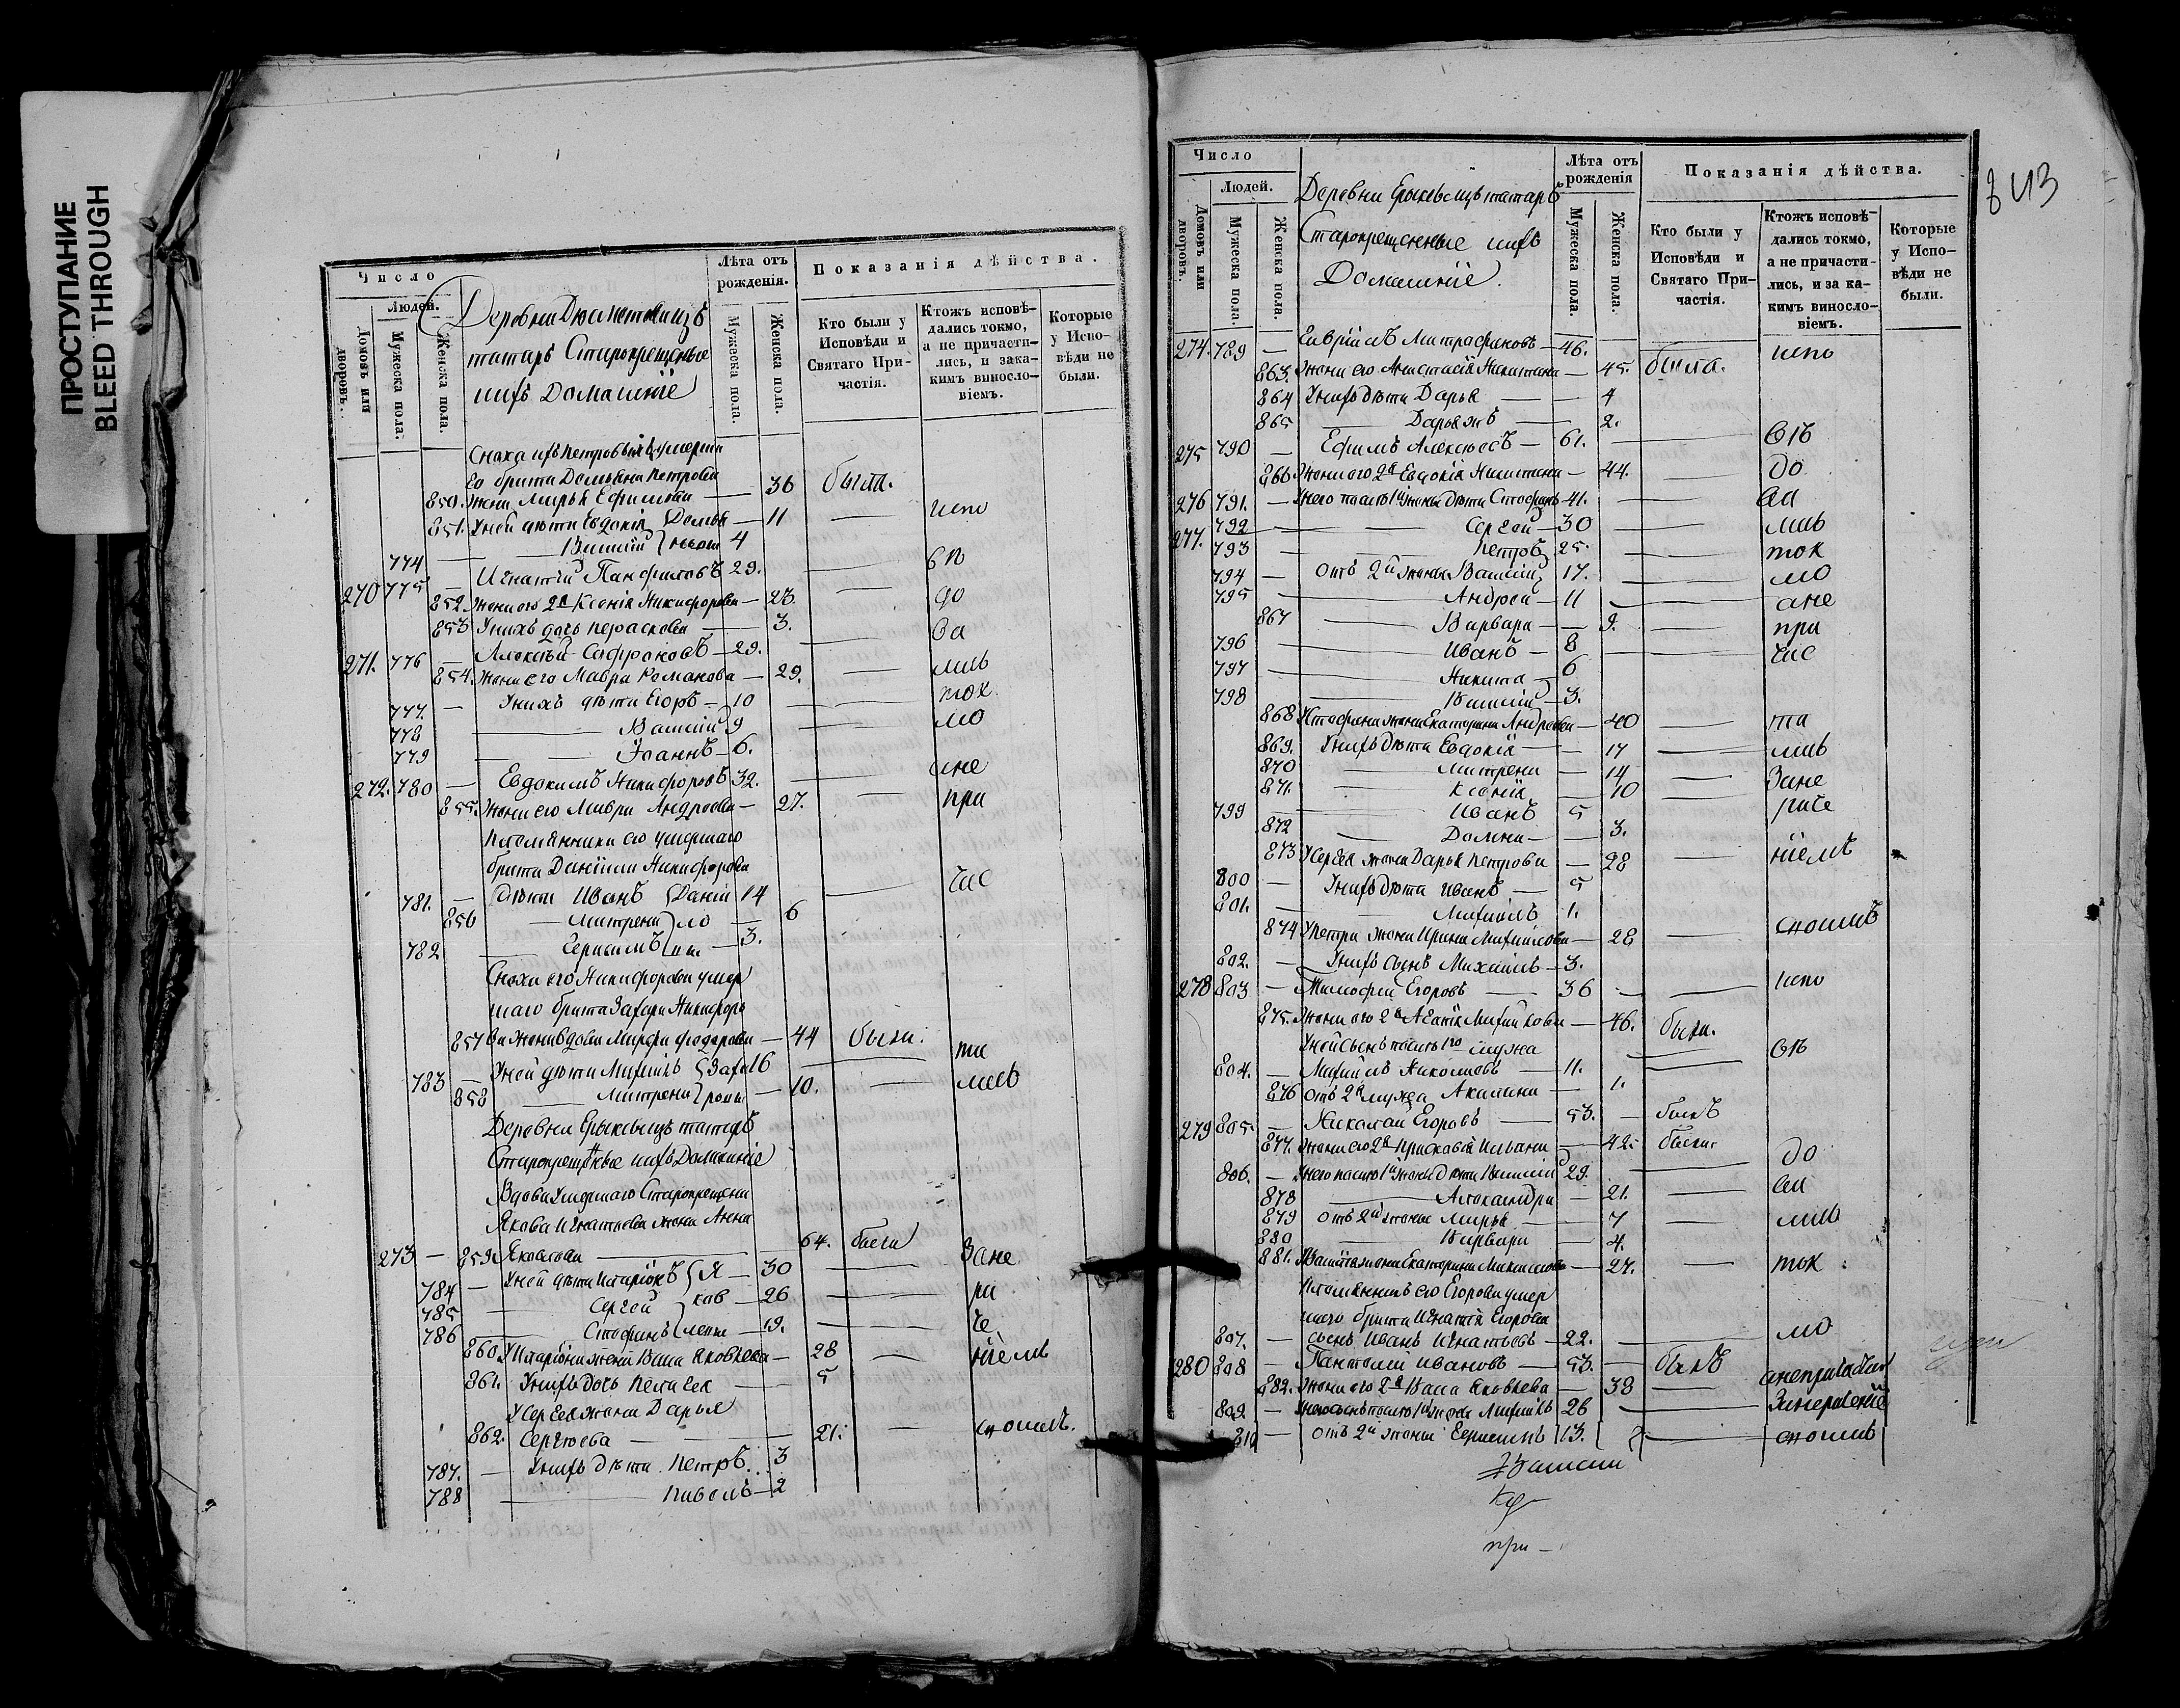 ПРОСТУПАНИЕ
BLEED THROUGH
Число
Людей.
Домовъ или дворовъ.
Мужеска пола.
Женска пола.
Деревни изъ
татаръ Старокрещеные
ихъ Домашніе
Лѣта отъ рожденія.
Мужеска пола.
Женска пола.
Показанія дѣйства.
Кто были у Исповѣди и Святаго Причастія.
Ктожъ исповѣдались токмо, а не причастились, и закакимъ винословіемъ.
Которые у Исповѣди не были.
Сноха ихъ Петровыхъ умерша
го брата Демьяна Петрова
850. жена Марья Ефимова — 36 была.
851. У ней дѣти Евдокія — 11 — испо
774 — Василій 4
270 775 — Игнатій Панфиловъ 29. — вѣ
852. Жена его 2я Ксенія Никифорова — 23 — до
853 У нихъ дочь Парасковья — 3.
271. 776 — Алексѣй Сафроновъ — 29. — ва
854. Жена его Мавра Романова — 29. — лись
777. — У нихъ дѣти Егоръ — 10 — ток
778 — Василій 9 — мо
779 — Іоаннъ — 6.
272. 780 — Евдокимъ Никифоровъ 32. — ане
855. Жена его Мавра Андреева — 27. — при
Племянники его умершаго
брата Даніила Никифорова
781. — дѣти Иванъ 14 — час
856 — Матрена — 6
782 — Герасимъ — 3.
Сноха его Никифорова умер
шаго брата Захара Никифоро
857 ва жена вдова Марфа Федорова — 44 были.
783 — У ней дѣти Михаилъ 16 — ти
858 — Матрена — 10. — лись
Деревни Ерыклы изъ татаръ
Старокрещеные ихъ Домашніе
Вдова умершаго Старокрещена
Якова Игнатьева жена Анна
273 — 859. Яковлева — 64. была Зане
784 — У ней дѣти Иларіонъ — 30 — ра
785 — Сергѣй — 26 — че
786 — Стефанъ — 19.
860. У Иларіона жена Васса Яковлева — 28 — ніемъ
861. У нихъ дочь Пелагея — 5
У Сергея жена Дарья
862. Сергѣева — 21. — сномъ.
787. — У нихъ дѣти Петръ 3
788 — Павелъ — 2
843
Число
Людей.
Домовъ или дворовъ.
Мужеска пола.
Женска пола.
Деревни Ерыклы изъ татаръ
Старокрещенные ихъ
Домашніе.
Лѣта отъ рожденія
Мужеска пола.
Женска пола.
Показанія дѣйства.
Кто были у Исповѣди и Святаго Причастія.
Ктожъ исповѣдались токмо, а не причастились, и за какимъ винословіемъ.
Которые у Исповѣди не были.
274. 789 — Гавріилъ Митрофановъ — 46. испо
863. Жена его Анастасія Никитина — 45. была.
864 У нихъ дѣти Дарья — 4
865 — Дарья жъ — 2.
275 790 — Ефимъ Алексѣевъ — 61. — вѣ
866. Жена его 2я Евдокія Никитина — 44. — до
276 791. — У него отъ 1й жены дѣти Стефанъ 41. — ва
277. 792 — Сергей — 30 — лись
793 — Петръ 25. — ток
794 — Отъ 2й жены Василій 17. — мо
795 — Андрей — 11 — ане
867 — Варвара — 9. — при
796 — Иванъ — 8 — час
797 — Никита — 6
798 — Василій 3.
868 У Стефана жена Екатерина Андреева — 40 — ти
869. У нихъ дѣти Евдокія — 17 — лись
870 — Матрена — 14 — Зане
871. — Ксенія — 10 — раче
799 — Иванъ 5
872 — Домна — 3.
873 У Сергея жена Дарья Петрова — 28 — ніемъ
800 — У нихъ дѣти Иванъ — 5
801. — Михаилъ 1.
874 У Петра жена Ирина Михайлова — 28 — сномъ
802. — У нихъ сынъ Михаилъ — 3.
278 803 — Тимофей Егоровъ — 36 — испо
875. Жена его 2я Агафія Михайлова — 46. были.
У ней сынъ отъ 1го мужа
804. — Михаилъ Николаевъ — 11. — вѣ
876 Отъ 2го мужа Акилина — 1.
279 805. — Николай Егоровъ — 53. — былъ
877. Жена его 2я Прасковья Ильина — 42. была
806. — У него отъ 1й жены дѣти Василій 29. — до
878 — Александра — 21. — ва
879 Отъ 2й жены Марья — 7 — лись
880 — Варвара — 4.
881. У Василія жена Екатерина Максимова — 27. — ток
Племянникъ его Егорова умер
шаго брата Игнатія Егорова
807. — сынъ Иванъ Игнатьевъ — 22. — мо
280 808 — Пантелей Ивановъ — 53. — былъ
882. Жена его 2я Васса Яковлева — 38 — анепричас
809 — У него сынъ отъ 1й жены Михаилъ 26 — Занераченіе
810 — Отъ 2й жены Герасимъ 13. — сномъ
при —